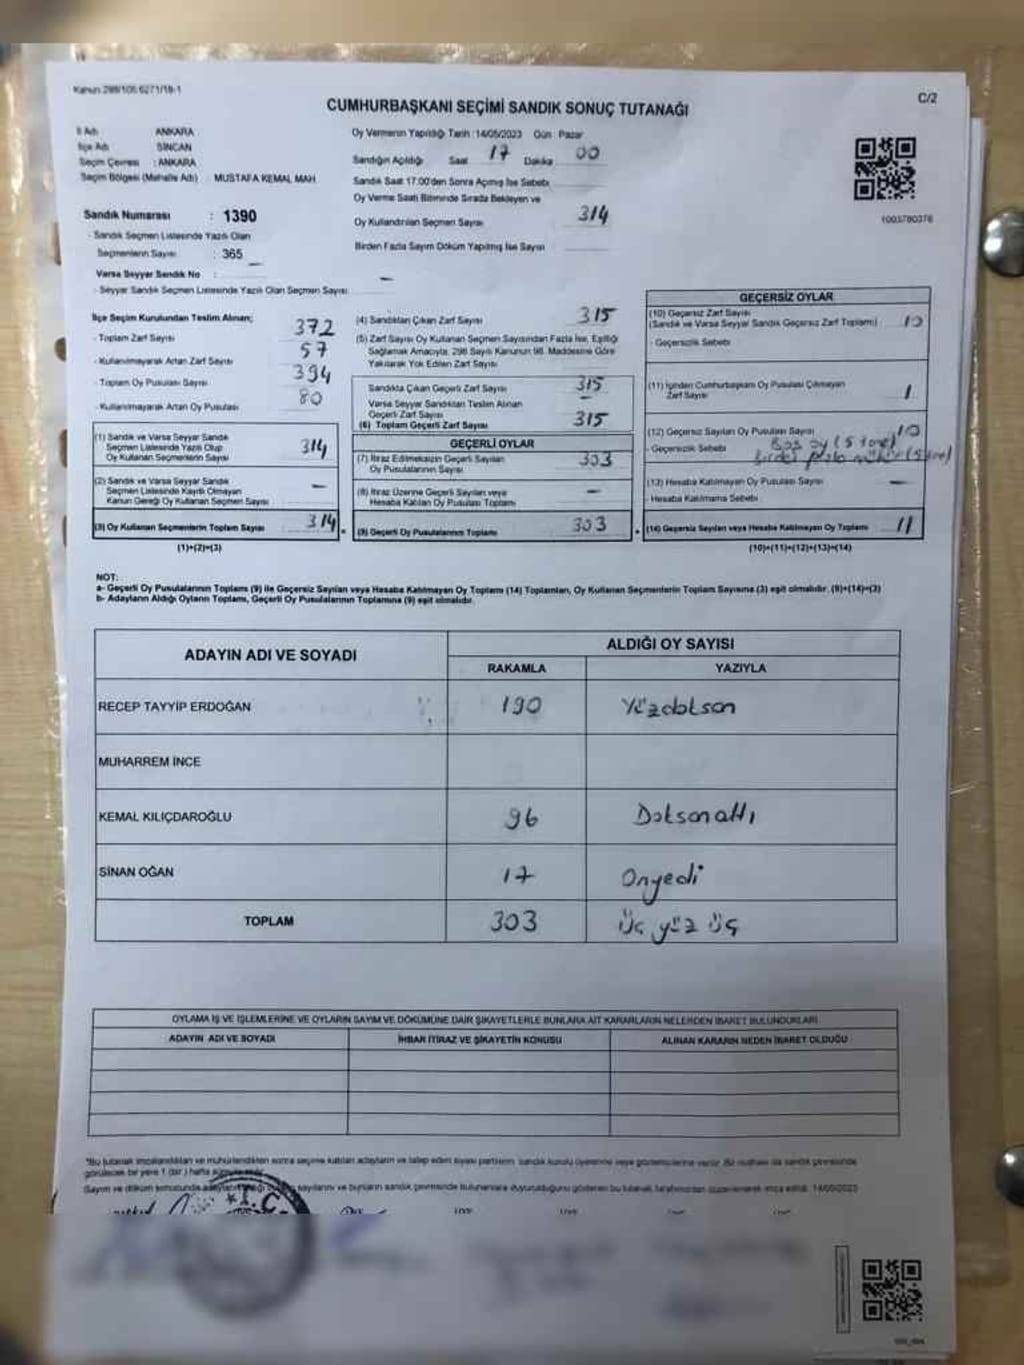 Kanun 298/105 6271/18-1
C/2
CUMHURBAŞKANI SEÇİMİ SANDIK SONUÇ TUTANAĞI
İl Adı ANKARA
İlçe Adı SİNCAN
Seçim Çevresi : ANKARA
Seçim Bölgesi (Mahalle Adı) MUSTAFA KEMAL MAH.
Sandık Numarası : 1390
- Sandık Seçmen Listesinde Yazılı Olan
Seçmenlerin Sayısı : 365
Varsa Seyyar Sandık No : —
- Seyyar Sandık Seçmen Listesinde Yazılı Olan Seçmen Sayısı
Oy Vermenin Yapıldığı Tarih :14/05/2023 Gün : Pazar
Sandığın Açıldığı Saat 17 Dakika 00
Sandık Saat 17:00'den Sonra Açılmış İse Sebebi
Oy Verme Saati Bitiminde Sırada Bekleyen ve
Oy Kullandırılan Seçmen Sayısı 314
Birden Fazla Sayım Döküm Yapılmış İse Sayısı
1003780376
İlçe Seçim Kurulundan Teslim Alınan;
- Toplam Zarf Sayısı 372
- Kullanılmayarak Artan Zarf Sayısı 57
- Toplam Oy Pusulası Sayısı 394
- Kullanılmayarak Artan Oy Pusulası 80
(1) Sandık ve Varsa Seyyar Sandık
Seçmen Listesinde Yazılı Olup
Oy Kullanan Seçmenlerin Sayısı 314
(2) Sandık ve Varsa Seyyar Sandık
Seçmen Listesinde Kayıtlı Olmayan
Kanun Gereği Oy Kullanan Seçmen Sayısı —
(3) Oy Kullanan Seçmenlerin Toplam Sayısı 314
(1)+(2)=(3)
(4) Sandıktan Çıkan Zarf Sayısı 315
(5) Zarf Sayısı Oy Kullanan Seçmen Sayısından Fazla İse, Eşitliği
Sağlamak Amacıyla, 298 Sayılı Kanunun 98. Maddesine Göre
Yakılarak Yok Edilen Zarf Sayısı
Sandıkta Çıkan Geçerli Zarf Sayısı 315
Varsa Seyyar Sandıktan Teslim Alınan
Geçerli Zarf Sayısı —
(6) Toplam Geçerli Zarf Sayısı 315
GEÇERLİ OYLAR
(7) İtiraz Edilmeksizin Geçerli Sayılan
Oy Pusulalarının Sayısı 303
(8) İtiraz Üzerine Geçerli Sayılan veya
Hesaba Katılan Oy Pusulası Toplamı —
(9) Geçerli Oy Pusulalarının Toplamı 303
GEÇERSİZ OYLAR
(10) Geçersiz Zarf Sayısı
(Sandık ve Varsa Seyyar Sandık Geçersiz Zarf Toplamı) 10
- Geçersizlik Sebebi
(11) İçinden Cumhurbaşkanı Oy Pusulası Çıkmayan
Zarf Sayısı 1
(12) Geçersiz Sayılan Oy Pusulası Sayısı 10
- Geçersizlik Sebebi Boş oy (5 tane)
(5 tane)
(13) Hesaba Katılmayan Oy Pusulası Sayısı —
- Hesaba Katılmama Sebebi
(14) Geçersiz Sayılan veya Hesaba Katılmayan Oy Toplamı 11
(10)+(11)+(12)+(13)=(14)
NOT:
a- Geçerli Oy Pusulalarının Toplamı (9) ile Geçersiz Sayılan veya Hesaba Katılmayan Oy Toplamı (14) Toplamları, Oy Kullanan Seçmenlerin Toplam Sayısına (3) eşit olmalıdır. (9)+(14)=(3)
b- Adayların Aldığı Oyların Toplamı, Geçerli Oy Pusulalarının Toplamına (9) eşit olmalıdır.
ADAYIN ADI VE SOYADI ALDIĞI OY SAYISI
RAKAMLA YAZIYLA
RECEP TAYYİP ERDOĞAN 190 Yüzdoksan
MUHARREM İNCE
KEMAL KILIÇDAROĞLU 96 Doksanaltı
SİNAN OĞAN 17 Onyedi
TOPLAM 303 üç yüz üç
OYLAMA İŞ VE İŞLEMLERİNE VE OYLARIN SAYIM VE DÖKÜMÜNE DAİR ŞİKAYETLERLE BUNLARA AİT KARARLARIN NELERDEN İBARET BULUNDUKLARI
ADAYIN ADI VE SOYADI İHBAR İTİRAZ VE ŞİKAYETİN KONUSU ALINAN KARARIN NEDEN İBARET OLDUĞU
*Bu tutanak imzalandıktan ve mühürlendikten sonra seçime katılan adayların ve talep eden siyasi partilerin sandık kurulu üyelerine veya gözlemcilerine verilir. Bir nüshası da sandık çevresinde
görülecek bir yere 1 (bir) hafta süreyle asılır.
Sayım ve döküm sonucunda adayların aldığı oy sayılarını ve bunların sandık çevresinde bulunanlara duyurulduğunu gösteren bu tutanak tarafımızdan düzenlenerek imza edildi. 14/05/2023
T.C.